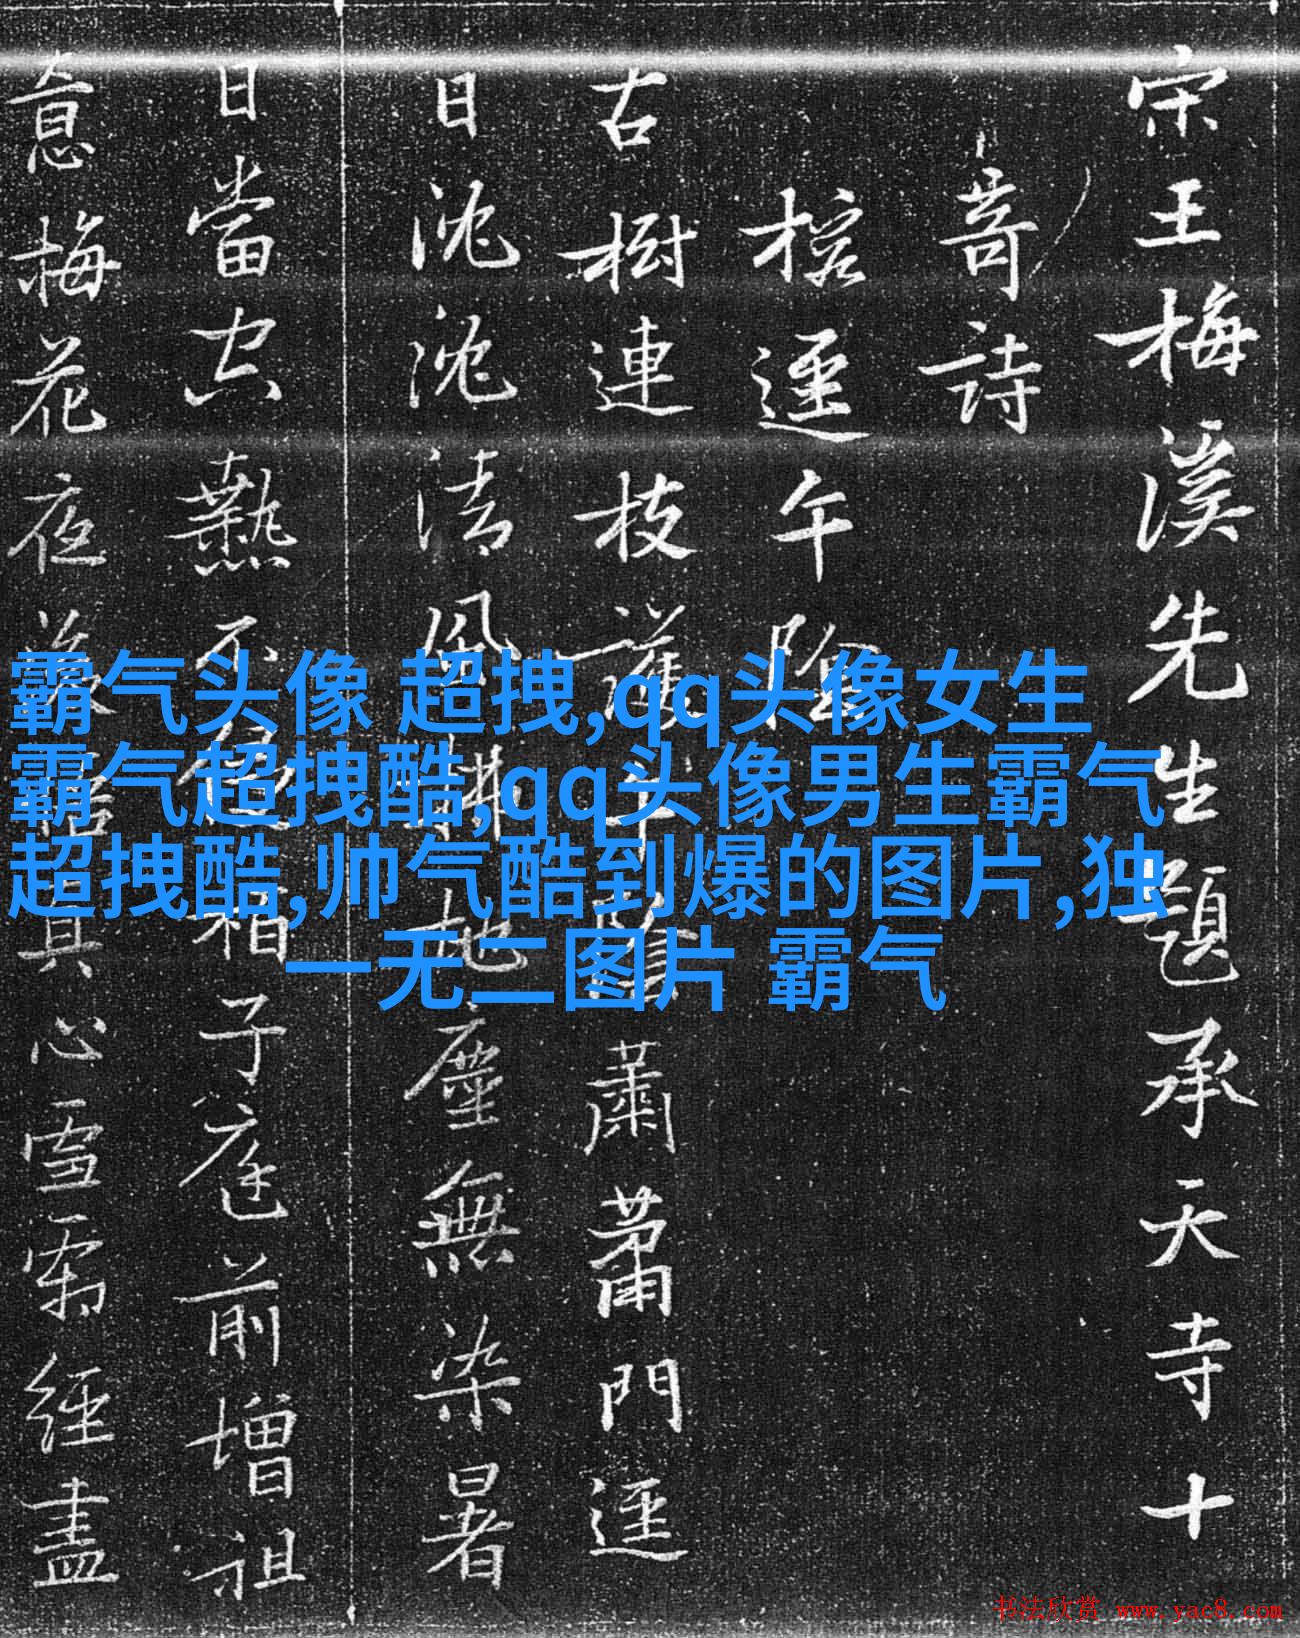 宋王梅溪先生題承天寺十
詩
榕逕午陰
古樹連枝 蕭蕭門逕
日沈沈清風拂地塵無染暑
日當空熱不 柏子庭前增祖
意梅花夜 真心雪霽經盡
霸气头像 超拽,qq头像女生
霸气超拽酷,qq头像男生霸气
超拽酷,帅气酷到爆的图片,独
一无二图片 霸气
书法欣赏 www.yac8.com